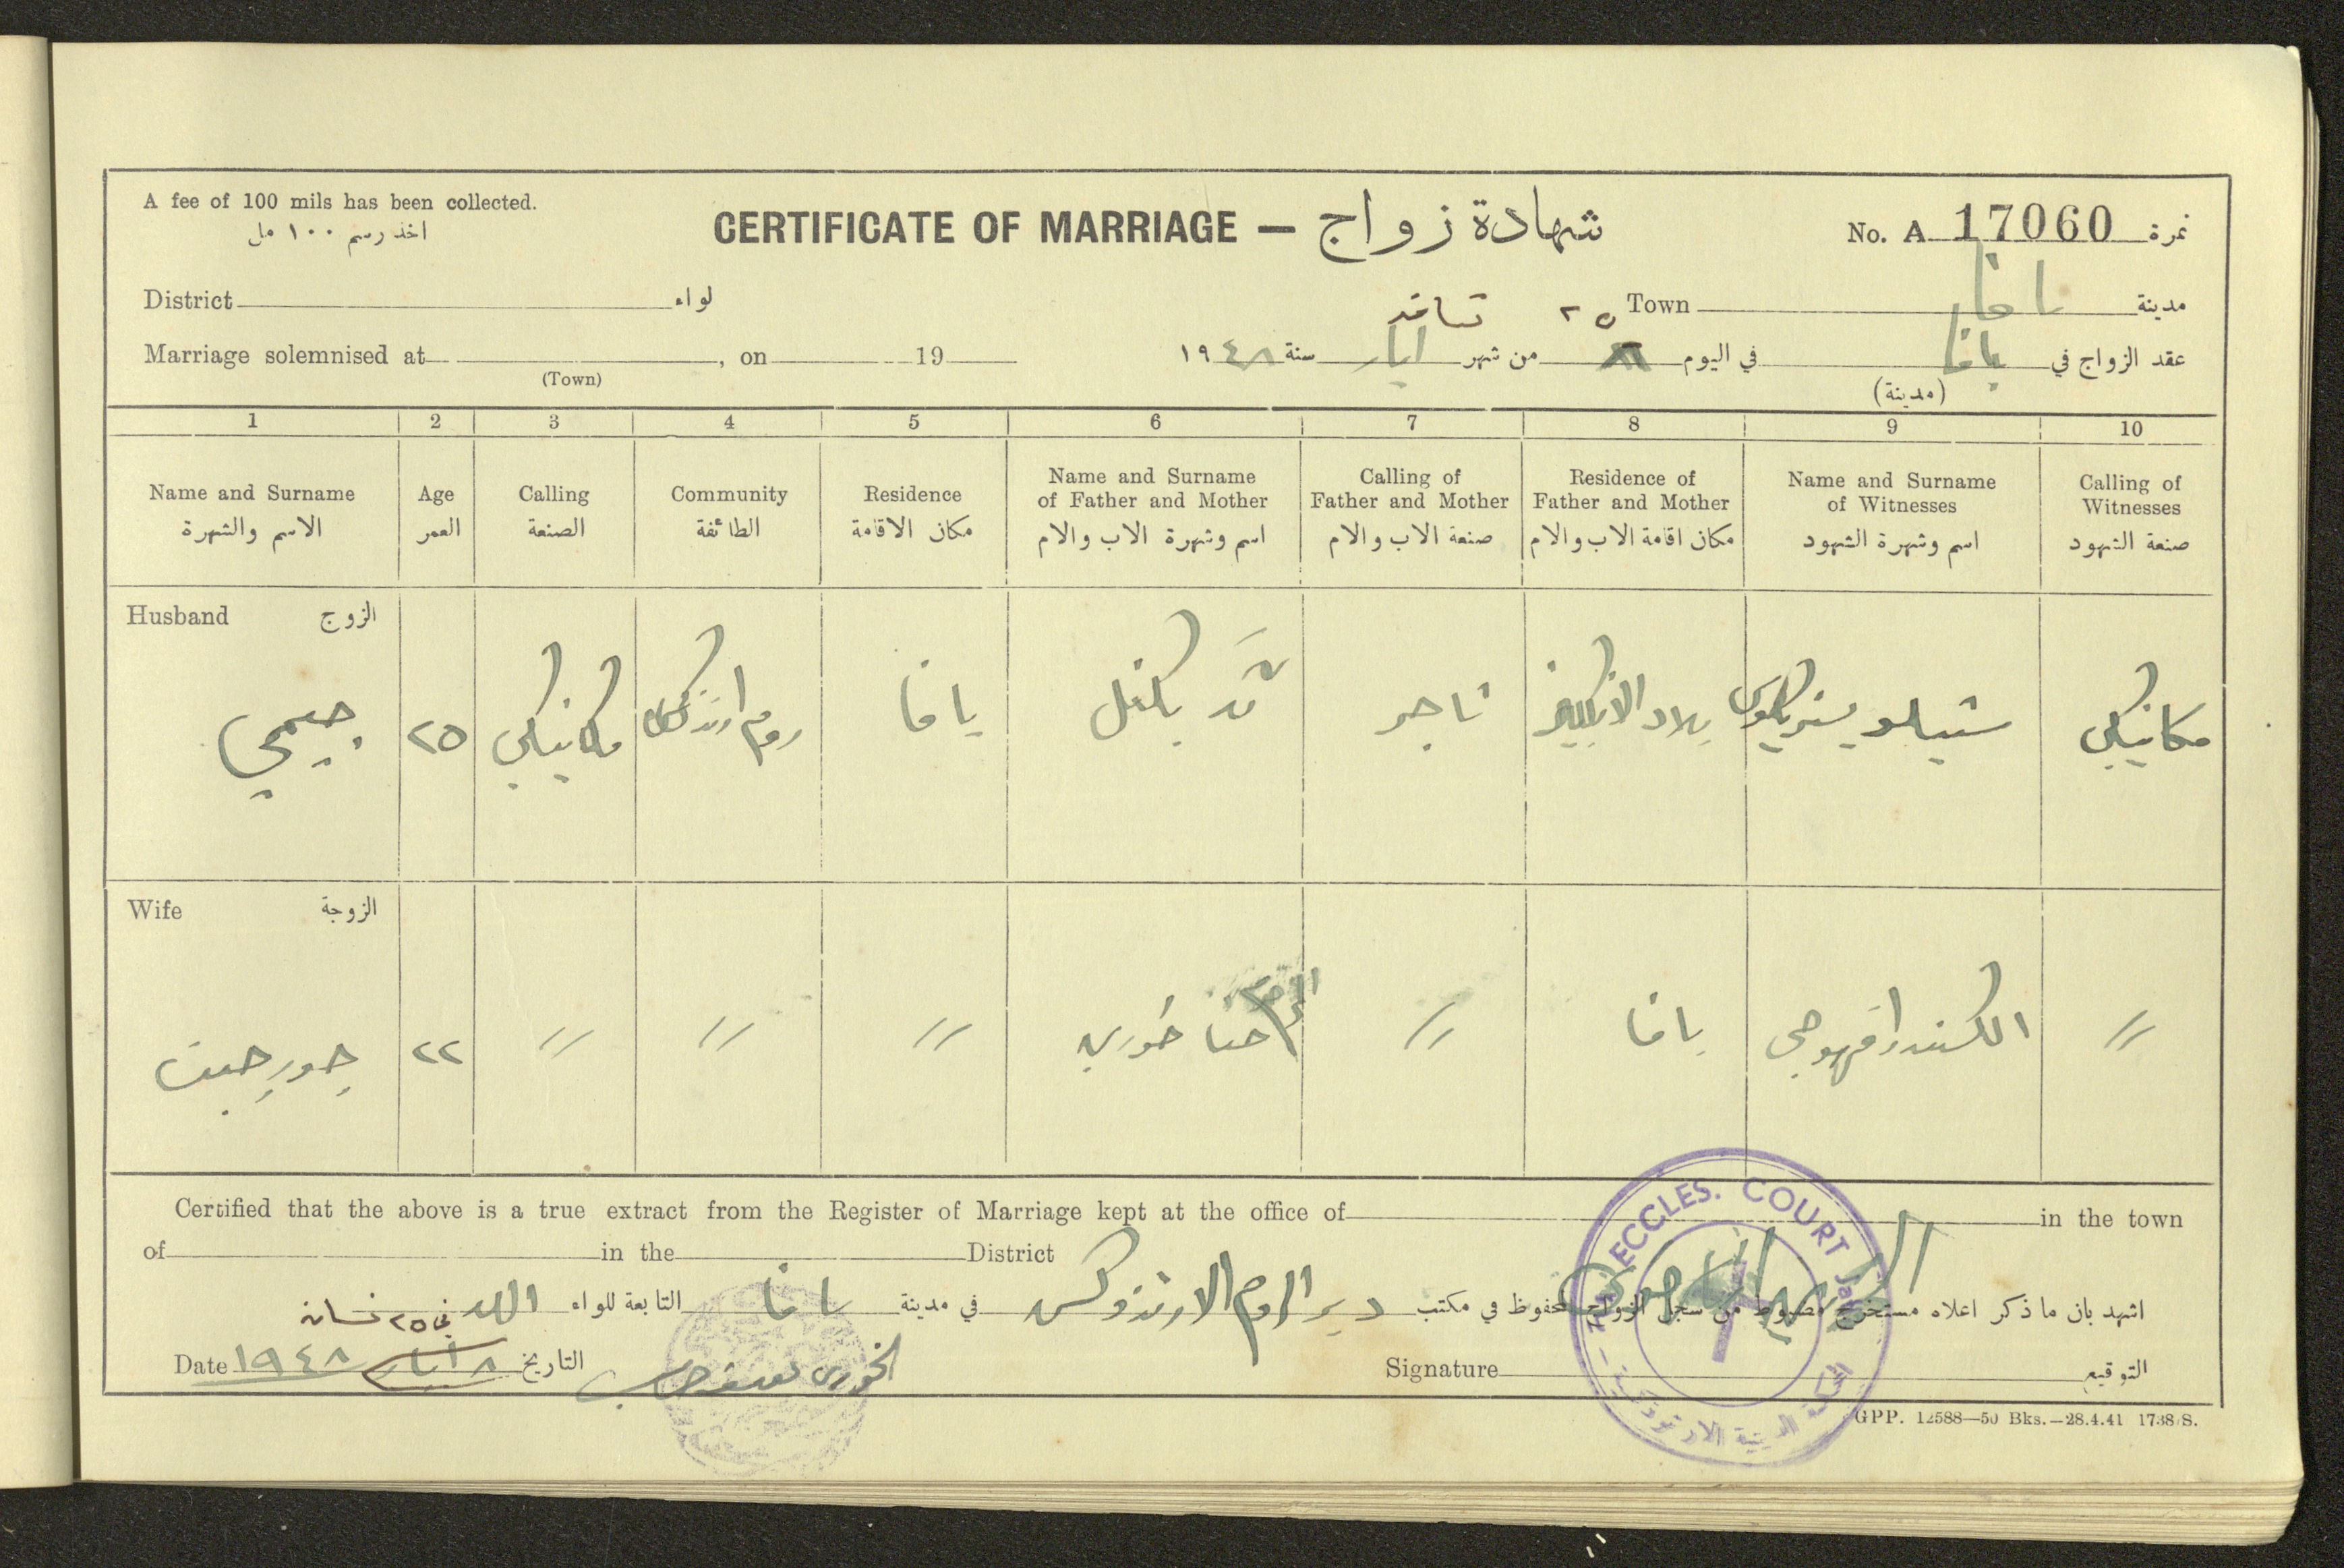 A fee of 100 mils has been collected.
اخذ رسم ١٠٠ مل
CERTIFICATE OF MARRIAGE — شهادة زواج
No. A 17060 نمرة
District لواء
Town يافا مدينة
٢٥
Marriage solemnised at , on 19
(Town)
عقد الزواج في يافا في اليوم من شهر ايار سنة ١٩٤٨
(مدينة)
1 2 3 4 5 6 7 8 9 10
Name and Surname الاسم والشهرة
Age العمر
Calling الصنعة
Community الطائفة
Residence مكان الاقامة
Name and Surname of Father and Mother اسم وشهرة الاب والام
Calling of Father and Mother صنعة الاب والام
Residence of Father and Mother مكان اقامة الاب والام
Name and Surname of Witnesses اسم وشهرة الشهود
Calling of Witnesses صنعة الشهود
Husband الزوج
جيمي ٢٥ مكانيكي روم ارثذكس يافا تاجر بلاد الانكليز مكانيكي
Wife الزوجة
جورجيت ٢٢ " " " حنا خوري " يافا الكسندرا قهوجي "
Certified that the above is a true extract from the Register of Marriage kept at the office of in the town
of in the District
اشهد بان ما ذكر اعلاه مستخرج مضبوط من سجل الزواج المحفوظ في مكتب دير الروم الارثذوكس في مدينة يافا التابعة للواء اللد
في ٢٥ نيسان
Date ٨ ايار ١٩٤٨ التاريخ
الخوري
Signature التوقيع
ECCLES. COURT
الدينية الارثوذكسية
GPP. 12588—50 Bks.—28.4.41 1738/S.